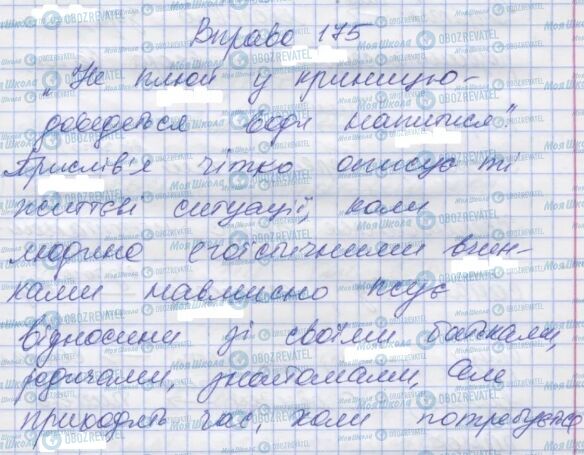 Вправа 175
„Не плюй у криницю-
доведеться води напитися".
Прислів'я чітко описує ті
життєві ситуації, коли
людина егоїстичними вчин-
ками навмисно псує
відносини зі своїми батьками,
родичами, знайомами, Але
приходить час, коли потребується